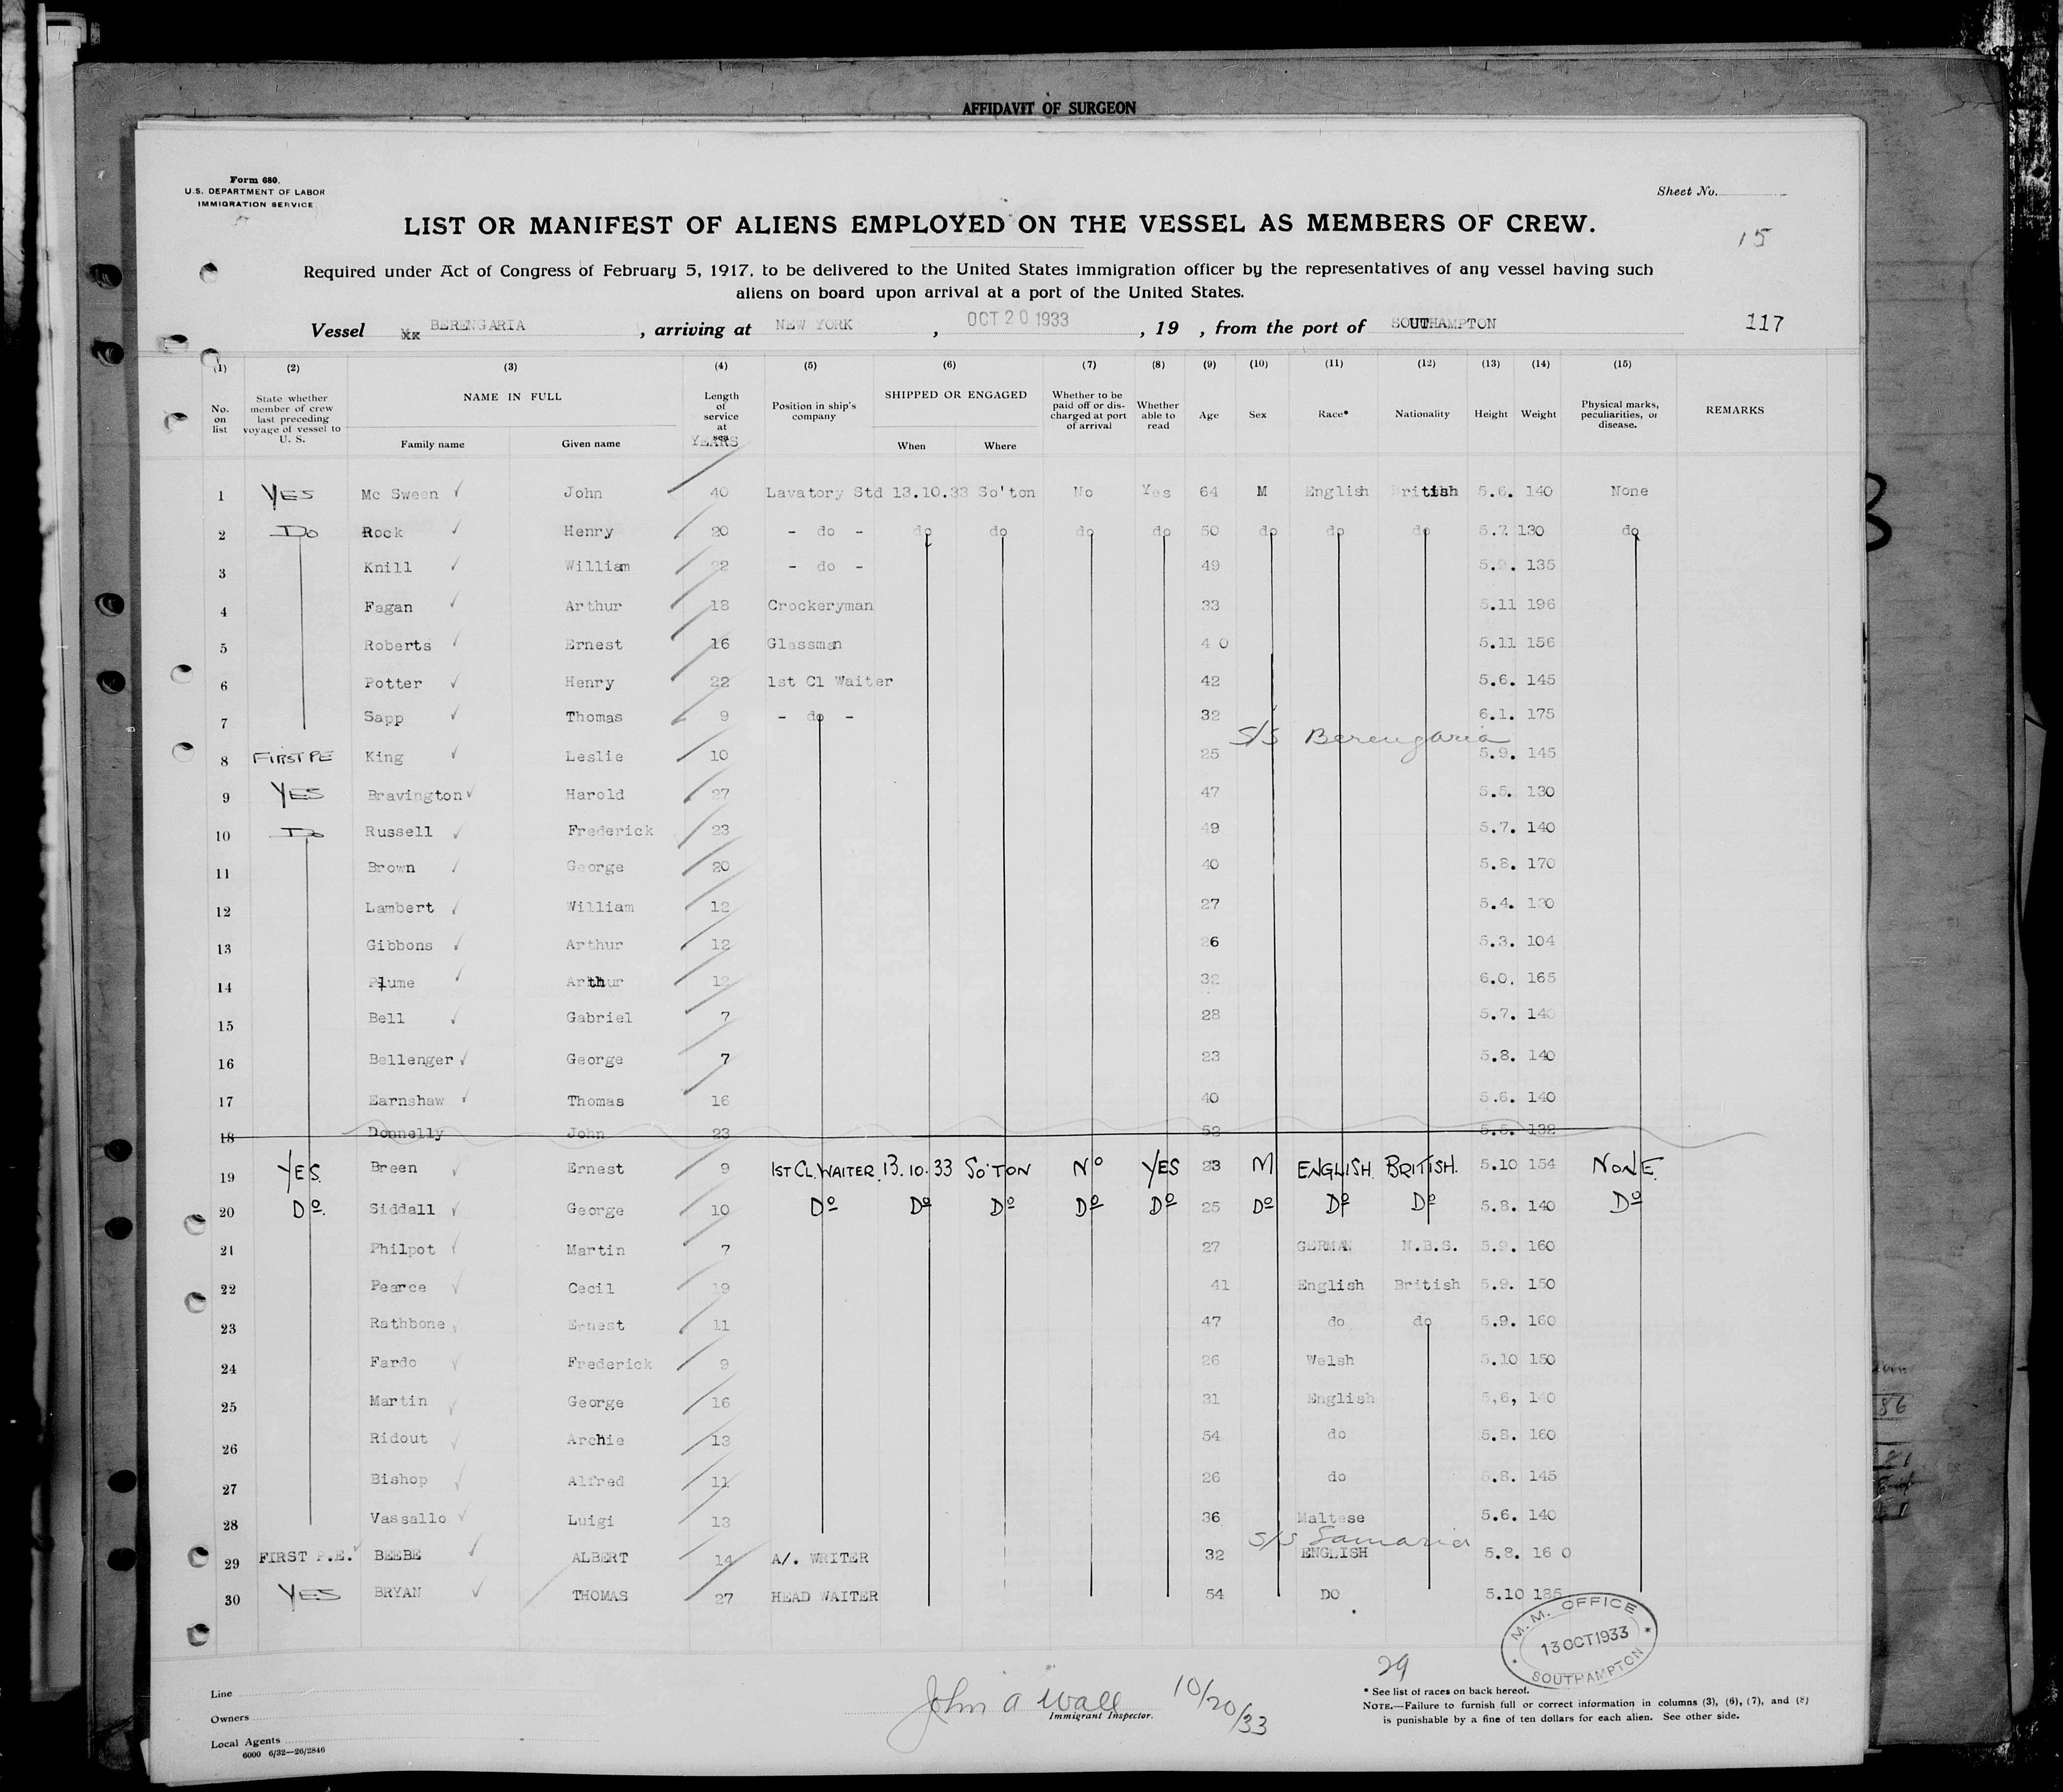 AFFIDAVIT OF SURGEON
Form 680.
U.S. DEPARTMENT OF LABOR
IMMIGRATION SERVICE
Sheet No.
LIST OR MANIFEST OF ALIENS EMPLOYED ON THE VESSEL AS MEMBERS OF CREW.
15
Required under Act of Congress of February 5, 1917, to be delivered to the United States immigration officer by the representatives of any vessel having such
aliens on board upon arrival at a port of the United States.
Vessel xx BERENGARIA , arriving at NEW YORK , OCT 20 1933 , 19 , from the port of SOUTHAMPTON 117
(1) (2) (3) (4) (5) (6) (7) (8) (9) (10) (11) (12) (13) (14) (15)
No. on list State whether member of crew last preceding voyage of vessel to U. S. NAME IN FULL Family name Given name Length of service at sea YEARS Position in ship's company SHIPPED OR ENGAGED When Where Whether to be paid off or discharged at port of arrival Whether able to read Age Sex Race* Nationality Height Weight Physical marks, peculiarities, or disease. REMARKS
1 YES Mc Sween John 40 Lavatory Std 13.10.33 So'ton No Yes 64 M English British 5.6. 140 None
2 Do Rock Henry 20 - do - do do do do 50 do do do 5.7. 130 do
3 Knill William 22 - do - 49 5.9. 135
4 Fagan Arthur 18 Crockeryman 33 5.11 196
5 Roberts Ernest 16 Glassman 40 5.11 156
6 Potter Henry 22 1st Cl Waiter 42 5.6. 145
7 Sapp Thomas 9 - do - 32 6.1. 175
S/S Berengaria
8 FIRST PE King Leslie 10 25 5.9. 145
9 YES Bravington Harold 27 47 5.5. 130
10 Do Russell Frederick 23 49 5.7. 140
11 Brown George 20 40 5.8. 170
12 Lambert William 12 27 5.4. 130
13 Gibbons Arthur 12 26 5.3. 104
14 Plume Arthur 12 32 6.0. 165
15 Bell Gabriel 7 28 5.7. 140
16 Bellenger George 7 23 5.8. 140
17 Earnshaw Thomas 16 40 5.6. 140
18 Donnelly John 23 132
19 YES. Breen Ernest 9 1ST CL. WAITER. 13.10.33 SO'TON NO YES 23 M ENGLISH. BRITISH. 5.10 154 NONE.
20 DO. Siddall George 10 DO DO DO DO DO 25 DO DO DO 5.8. 140 DO
21 Philpot Martin 7 27 GERMAN N.B.S. 5.9. 160
22 Pearce Cecil 19 41 English British 5.9. 150
23 Rathbone Ernest 11 47 do do 5.9. 160
24 Fardo Frederick 9 26 Welsh 5.10 150
25 Martin George 16 31 English 5,6, 140
26 Ridout Archie 13 54 do 5.8. 160
27 Bishop Alfred 11 26 do 5.8. 145
28 Vassallo Luigi 13 36 Maltese 5.6. 140
S/S Samaria
29 FIRST P.E. BEEBE ALBERT 14 A/. WRITER 32 ENGLISH 5.8. 160
30 YES BRYAN THOMAS 27 HEAD WAITER 54 DO 5.10 185
M. M. OFFICE
13 OCT 1933
SOUTHAMPTON
29
Line
Owners
Local Agents
6000 6/32—26/2846
John A Wall 10/20/33
Immigrant Inspector.
* See list of races on back hereof.
NOTE.—Failure to furnish full or correct information in columns (3), (6), (7), and (8)
is punishable by a fine of ten dollars for each alien. See other side.